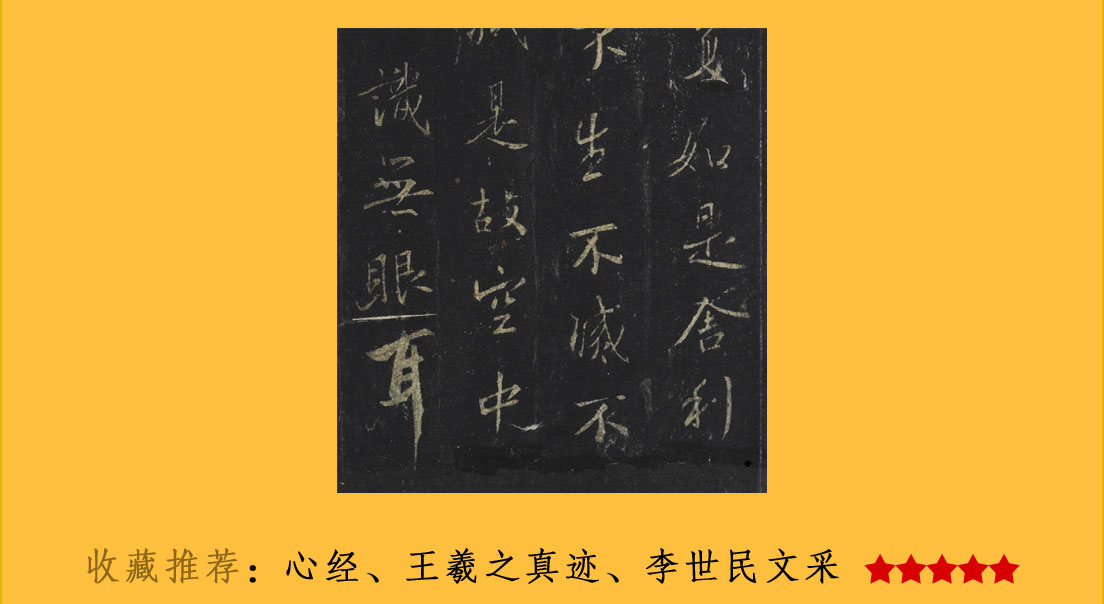 如是舍利
不生不滅不
是故空中
識無眼耳
收藏推荐：心经、王羲之真迹、李世民文采